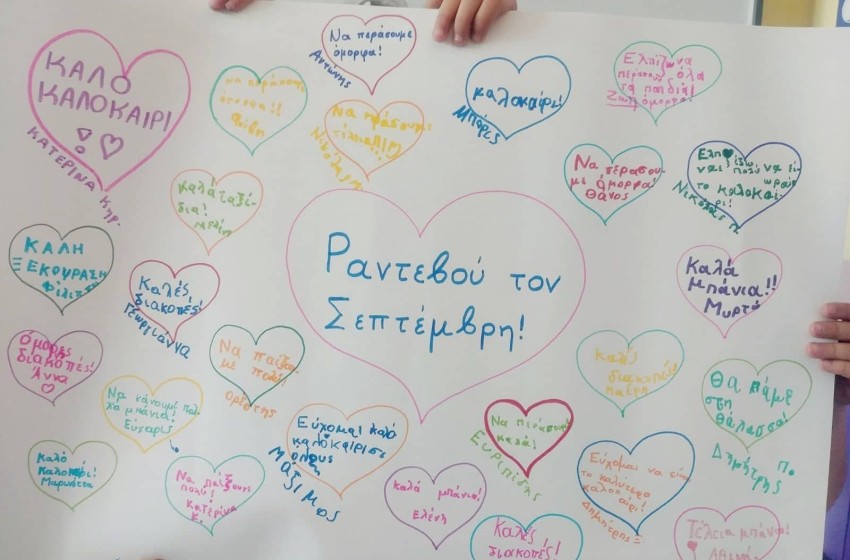 ΚΑΛΟ
ΚΑΛΟΚΑΙΡΙ
!
ΚΑΤΕΡΙΝΑ Κηρ.
Να περάσουμε
όμορφα!
Αντώνης
να περάσουμε
Φοίβη
Να περάσουμε
τέλεια!!!
καλοκαίρι!
Μπάρες
Ελπίζω να
περάσουν όλα
τα παιδιά
όμορφα!
Ζωή
καλά ταξί-
δια!
Να περασου-
με όμορφα!
Θάνος
Ελπίζω
ναι πολύ να εί-
το καλοκαί-
ρι!
Νικόλας Π.
ΚΑΛΗ
ΞΕΚΟΥΡΑΣΗ
Φίλιππος
Καλές
διακοπές!
Γεωργιάννα
Ραντεβού τον
Σεπτέμβρη!
Καλά
μπάνια!!
Μυρτώ
Όμορφες
διακοπές!
Άννα
Να παίξου-
με πολύ!
Ορέστης
Καλές
διακοπές
Θα πάμε
στη
θάλασσα!
Δημήτρης Π.
Να κάνουμε πολ-
λα μπάνια!
Εύχαρις
Εύχομαι καλό
καλοκαίρι σε
όλους
Μάξιμος
Να περάσουμε
καλά!
Ευριπίδης
Καλό
Καλοκαίρι!
Μαρινέττα
Να παίξουμε
πολύ!
Κατερίνα
Κ.
καλά μπάνια!
Ελένη
Εύχομαι να είναι
το καλύτερο
καλοκαίρι!
Δημήτρης Ξ
Καλές
διακοπές!
Τέλεια μπάνια!